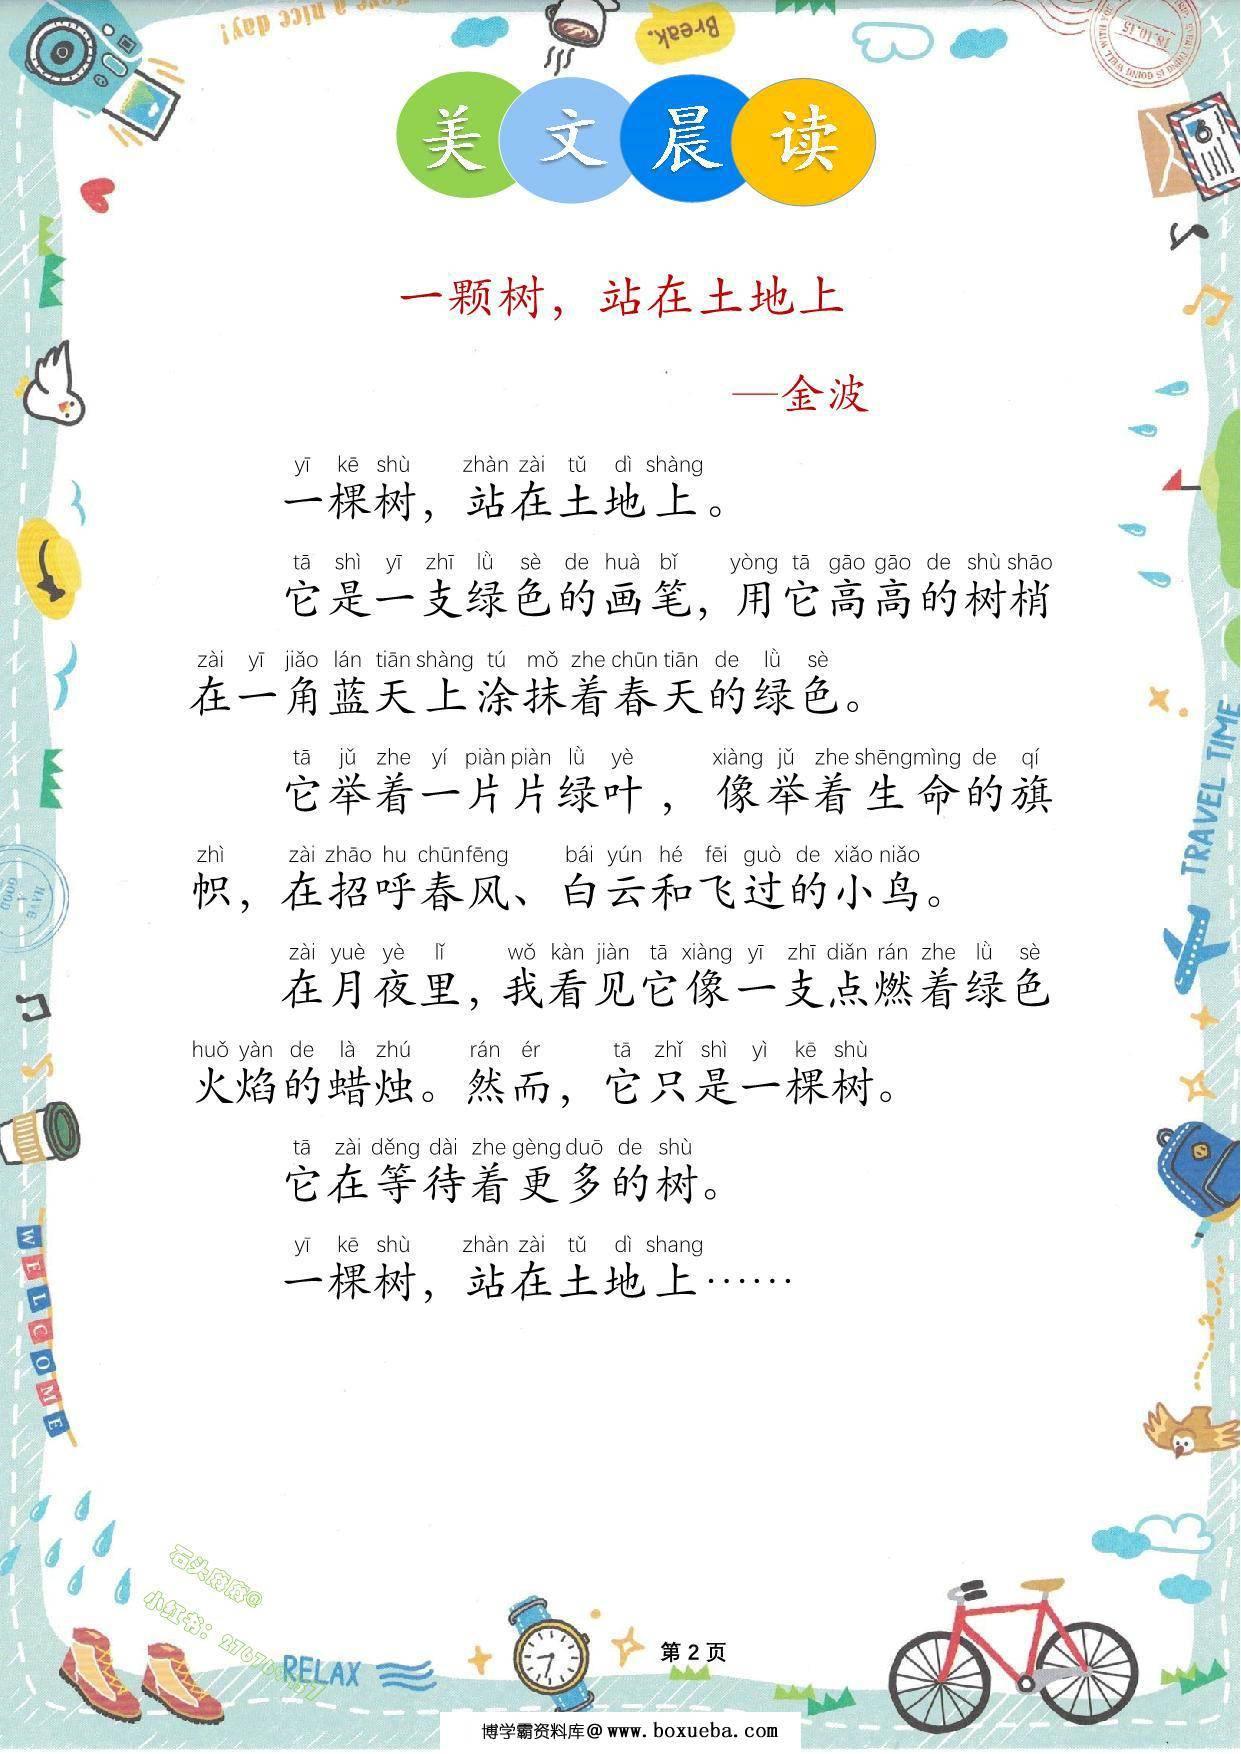 Have a nice day!
Break.
美文晨读
一颗树，站在土地上
—金波
yī kē shù zhàn zài tǔ dì shàng
一棵树，站在土地上。
tā shì yī zhī lǜ sè de huà bǐ yòng tā gāo gāo de shù shāo
它是一支绿色的画笔，用它高高的树梢
zài yī jiǎo lán tiān shàng tú mǒ zhe chūn tiān de lǜ sè
在一角蓝天上涂抹着春天的绿色。
tā jǔ zhe yí piàn piàn lǜ yè xiàng jǔ zhe shēng mìng de qí
它举着一片片绿叶，像举着生命的旗
zhì zài zhāo hu chūn fēng bái yún hé fēi guò de xiǎo niǎo
帜，在招呼春风、白云和飞过的小鸟。
zài yuè yè lǐ wǒ kàn jiàn tā xiàng yī zhī diǎn rán zhe lǜ sè
在月夜里，我看见它像一支点燃着绿色
huǒ yàn de là zhú rán ér tā zhǐ shì yì kē shù
火焰的蜡烛。然而，它只是一棵树。
tā zài děng dài zhe gèng duō de shù
它在等待着更多的树。
yī kē shù zhàn zài tǔ dì shang
一棵树，站在土地上……
TRAVEL TIME
WELCOME
RELAX
第 2 页
博学霸资料库@ www.boxueba.com